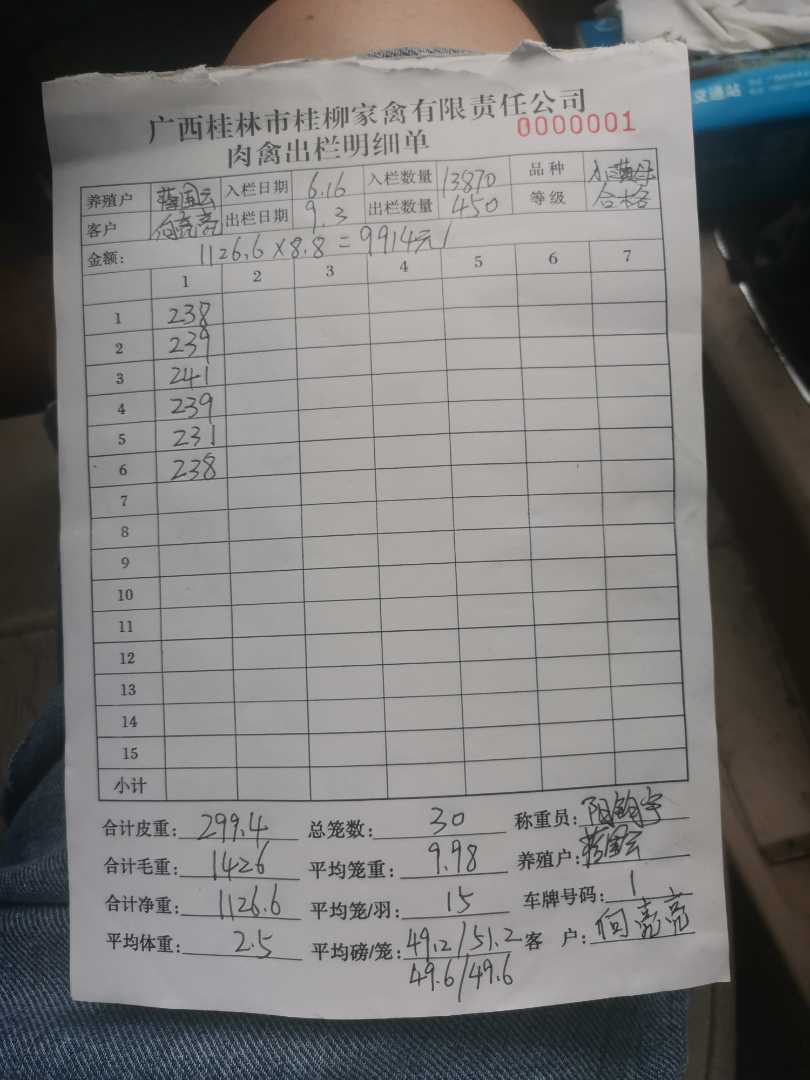 交通站
广西桂林市桂柳家禽有限责任公司
肉禽出栏明细单 0000001
养殖户 蒋国云 入栏日期 6.16 入栏数量 13870 品种
客户 何亮亮 出栏日期 9.3 出栏数量 450 等级 合格
金额: 1126.6×8.8=9914元/
1 2 3 4 5 6 7
1 238
2 239
3 241
4 239
5 231
6 238
7
8
9
10
11
12
13
14
15
小计
合计皮重: 299.4 总笼数: 30 称重员: 阳
合计毛重: 1426 平均笼重: 9.98 养殖户: 蒋国云
合计净重: 1126.6 平均笼/羽: 15 车牌号码: 1
平均体重: 2.5 平均磅/笼: 49.2/51.2 客 户: 何亮亮
49.6/49.6